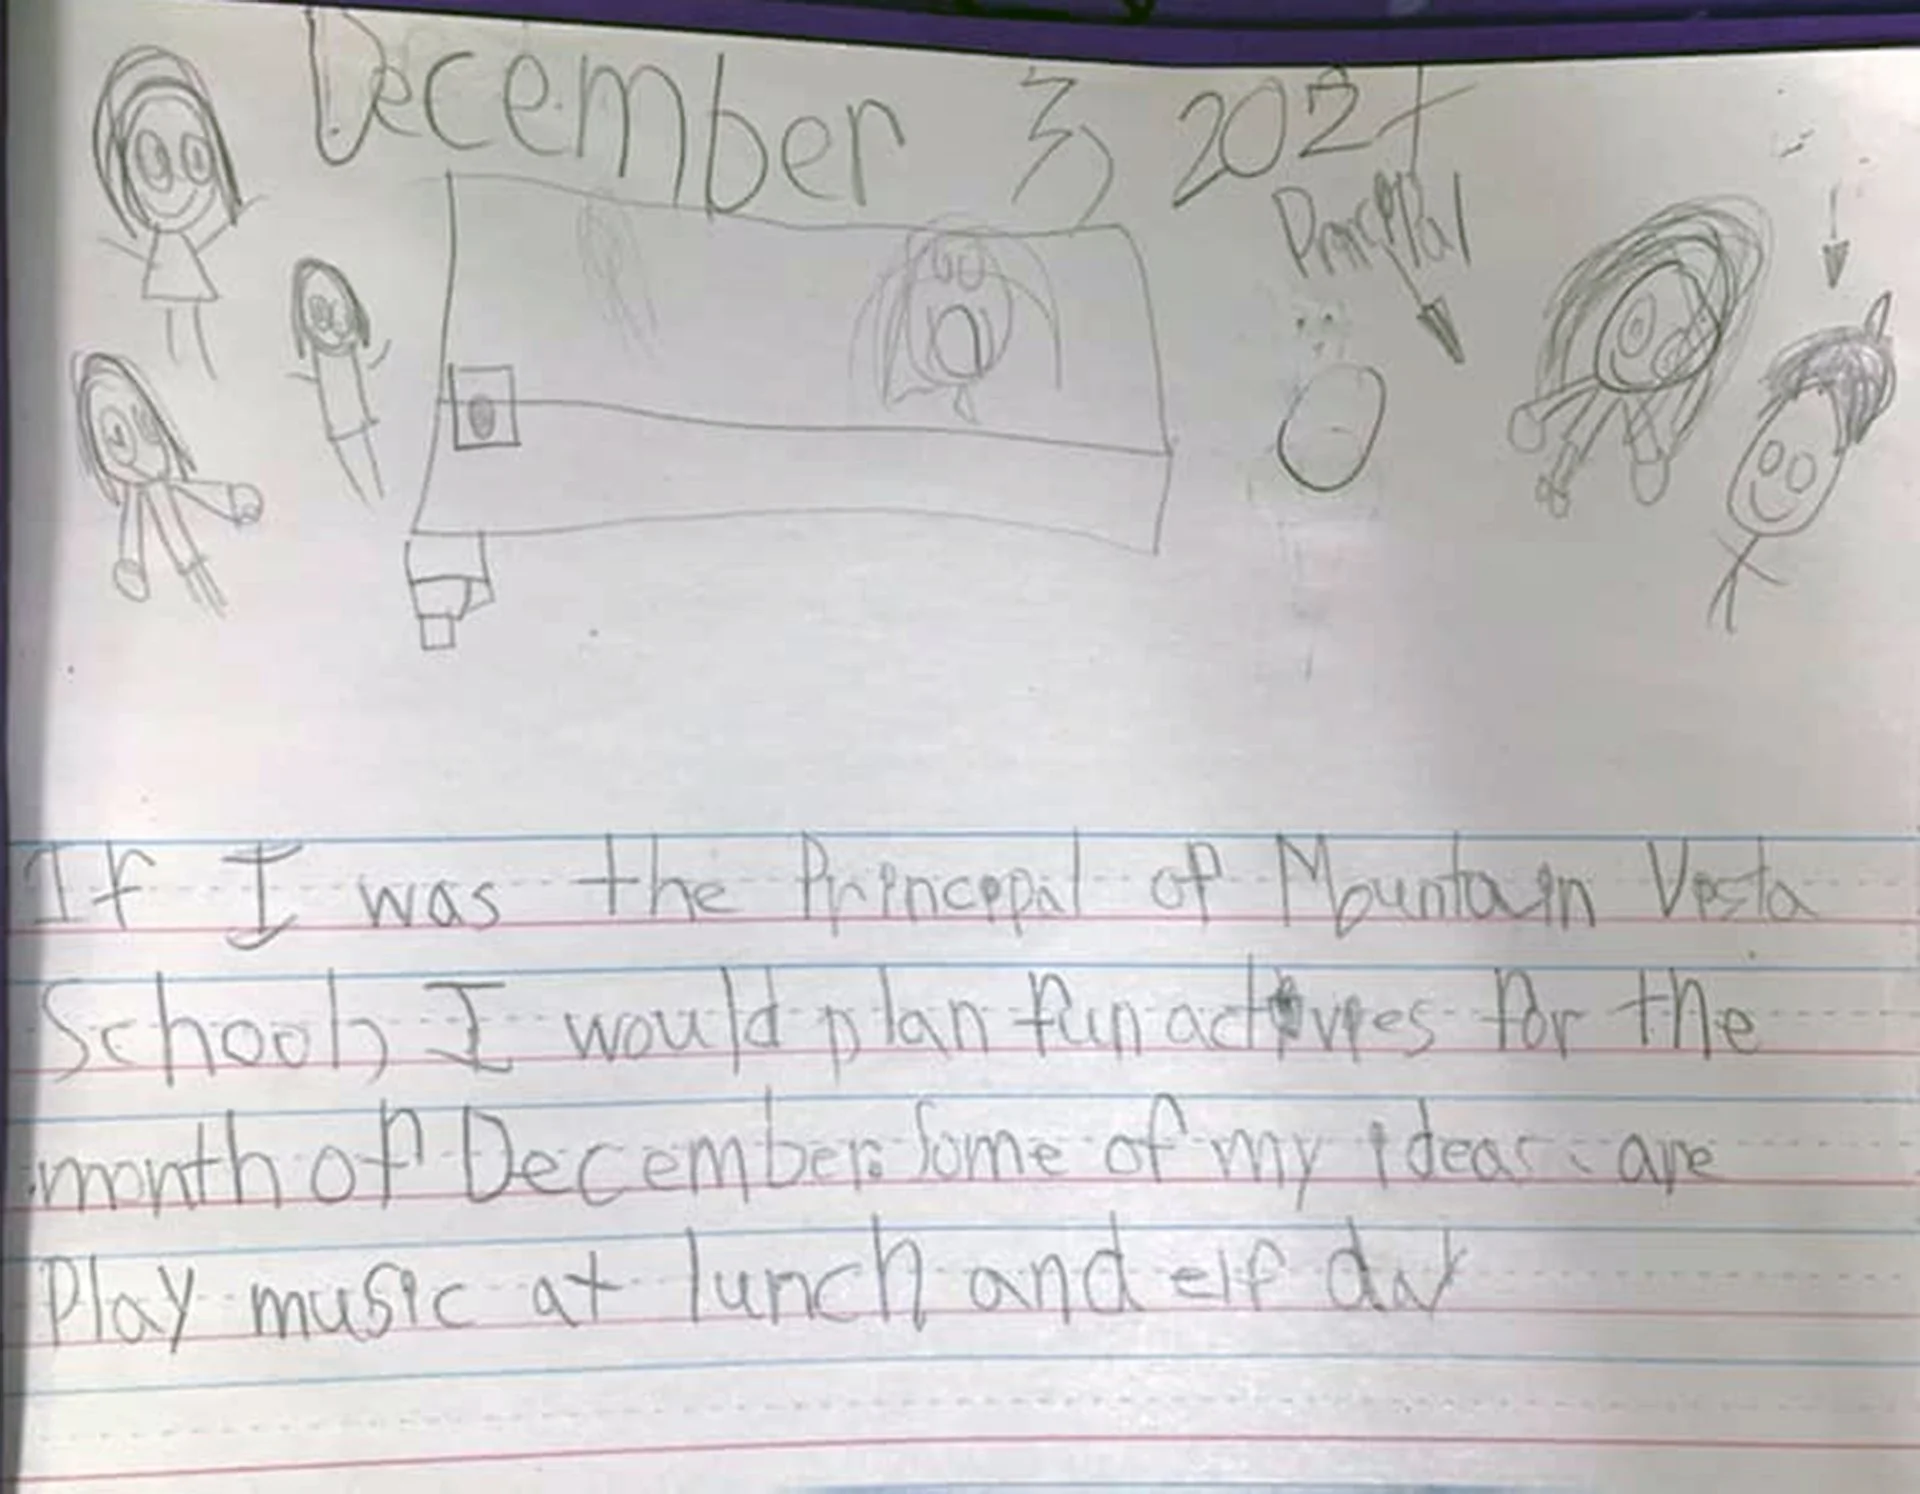 December 3, 2021
Princepal
If I was the Princepal of Mountain Vista
School, I would plan fun activies for the
month of December. Some of my ideas are
Play music at lunch and elf day